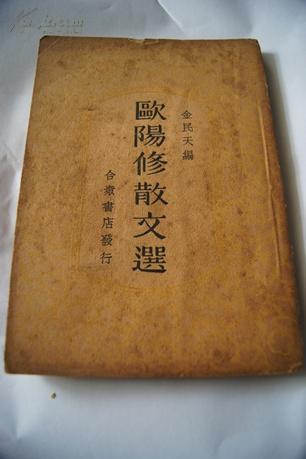 金民天編
歐陽修散文選
合衆書店發行